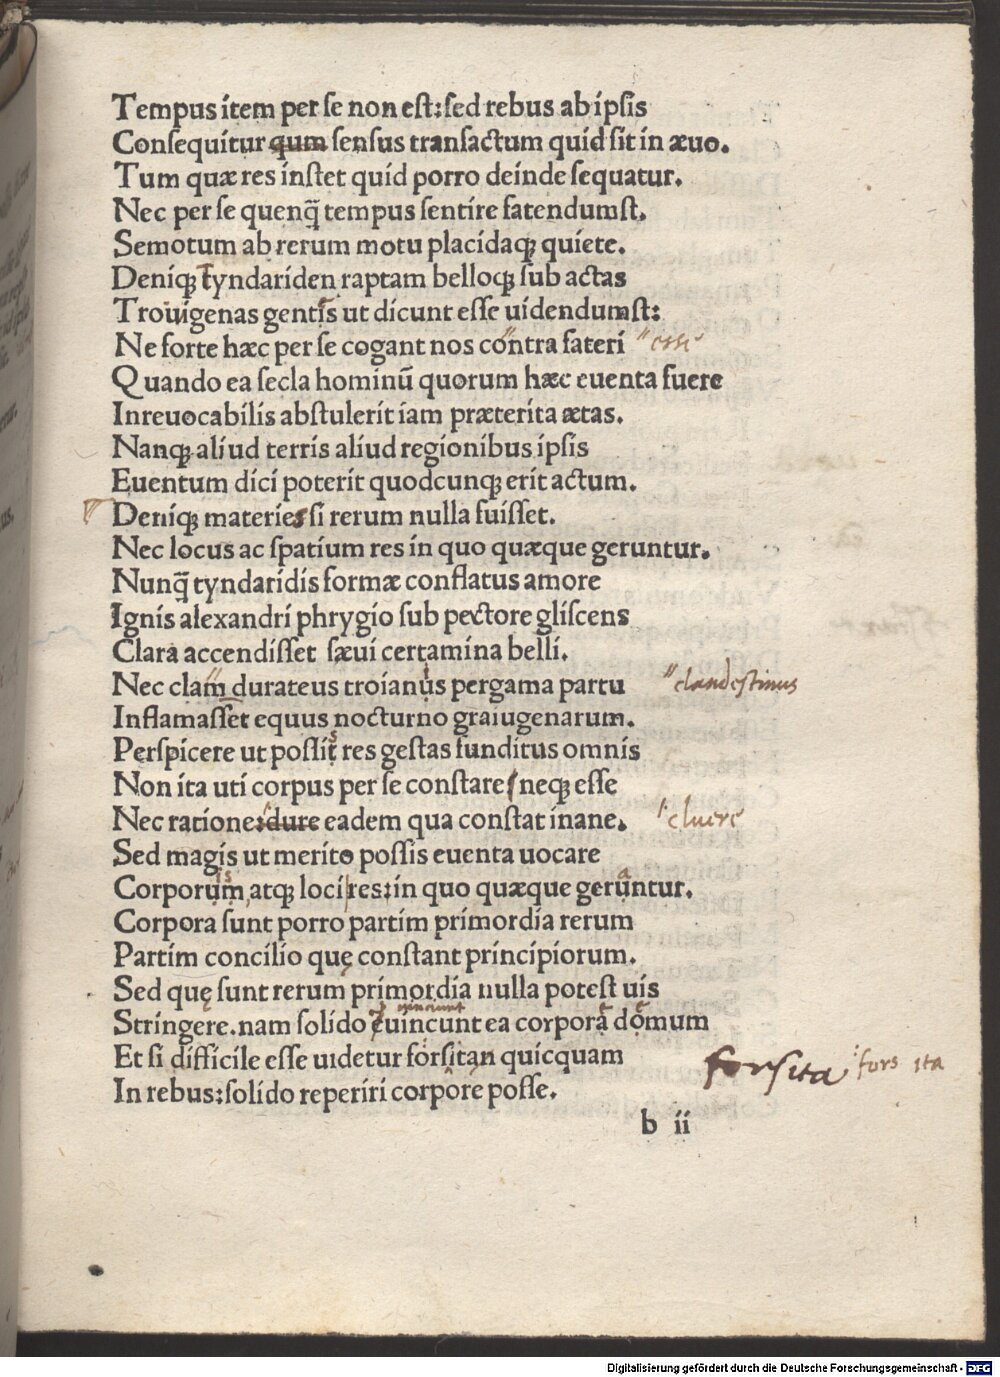 Tempus item per se non est: sed rebus ab ipsis
Consequitur qum sensus transactum quid sit in æuo.
Tum quæ res instet quid porro deinde sequatur.
Nec per se quenq̃ tempus sentire fatendumst.
Semotum ab rerum motu placidaq; quiete.
Deniq; tyndariden raptam belloq; sub actas
Troiugenas gentis ut dicunt esse uidendumst:
Ne forte hæc per se cogant nos contra fateri " esse
Quando ea secla hominū quorum hæc euenta fuere
Inreuocabilis abstulerit iam præterita ætas.
Nanq; aliud terris aliud regionibus ipsis
Euentum dici poterit quodcunq; erit actum.
Deniq; materies si rerum nulla fuisset.
Nec locus ac spatium res in quo quæque geruntur.
Nunq̃ tyndaridis formæ conflatus amore
Ignis alexandri phrygio sub pectore gliscens
Clara accendisset sæui certamina belli.
Nec clam durateus troianus pergama partu " clandestinus
Inflamasset equus nocturno graiugenarum.
Perspicere ut possit res gestas funditus omnis
Non ita uti corpus per se constare neq; esse
Nec ratione: dure eadem qua constat inane. cluere
Sed magis ut merito possis euenta uocare
Corporum atq; loci res: in quo quæque geruntur.
Corpora sunt porro partim primordia rerum
Partim concilio quę constant principiorum.
Sed quę sunt rerum primordia nulla potest uis
Stringere. nam solido uincunt ea corpora domum
Et si difficile esse uidetur forsitan quicquam forsita fors ita
In rebus: solido reperiri corpore posse.
b ii
Digitalisierung gefördert durch die Deutsche Forschungsgemeinschaft - DFG